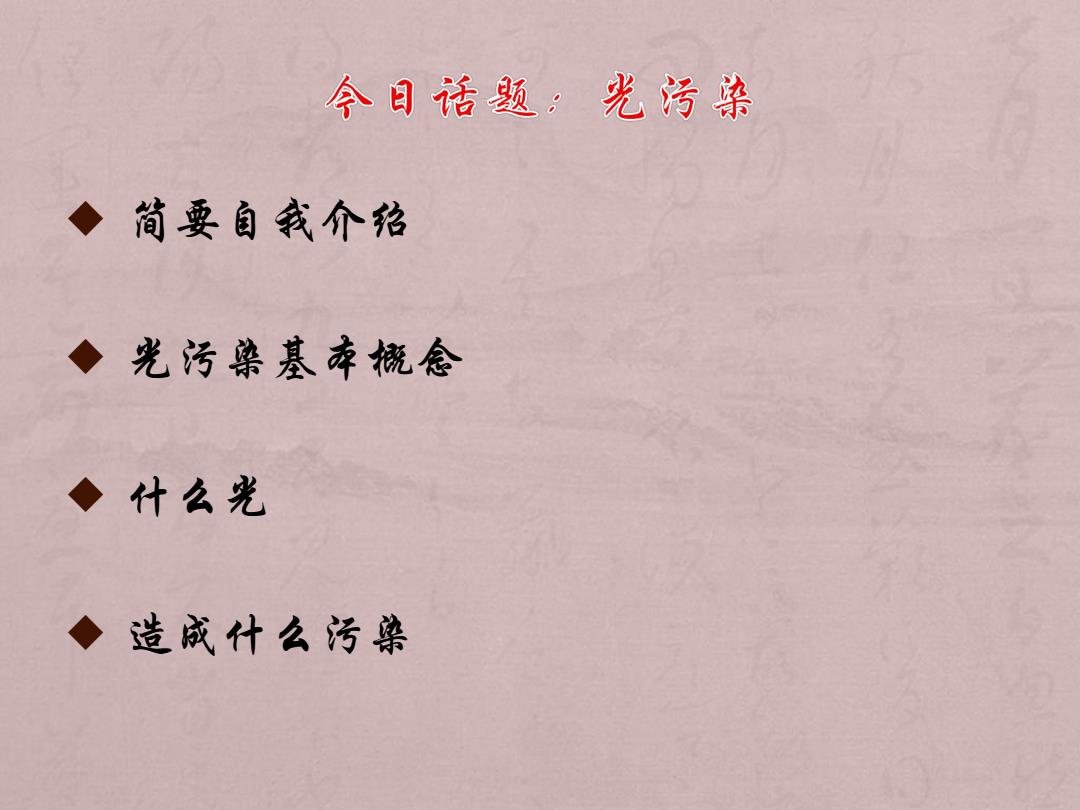 今日话题：光污染
◆ 简要自我介绍
◆ 光污染基本概念
◆ 什么光
◆ 造成什么污染